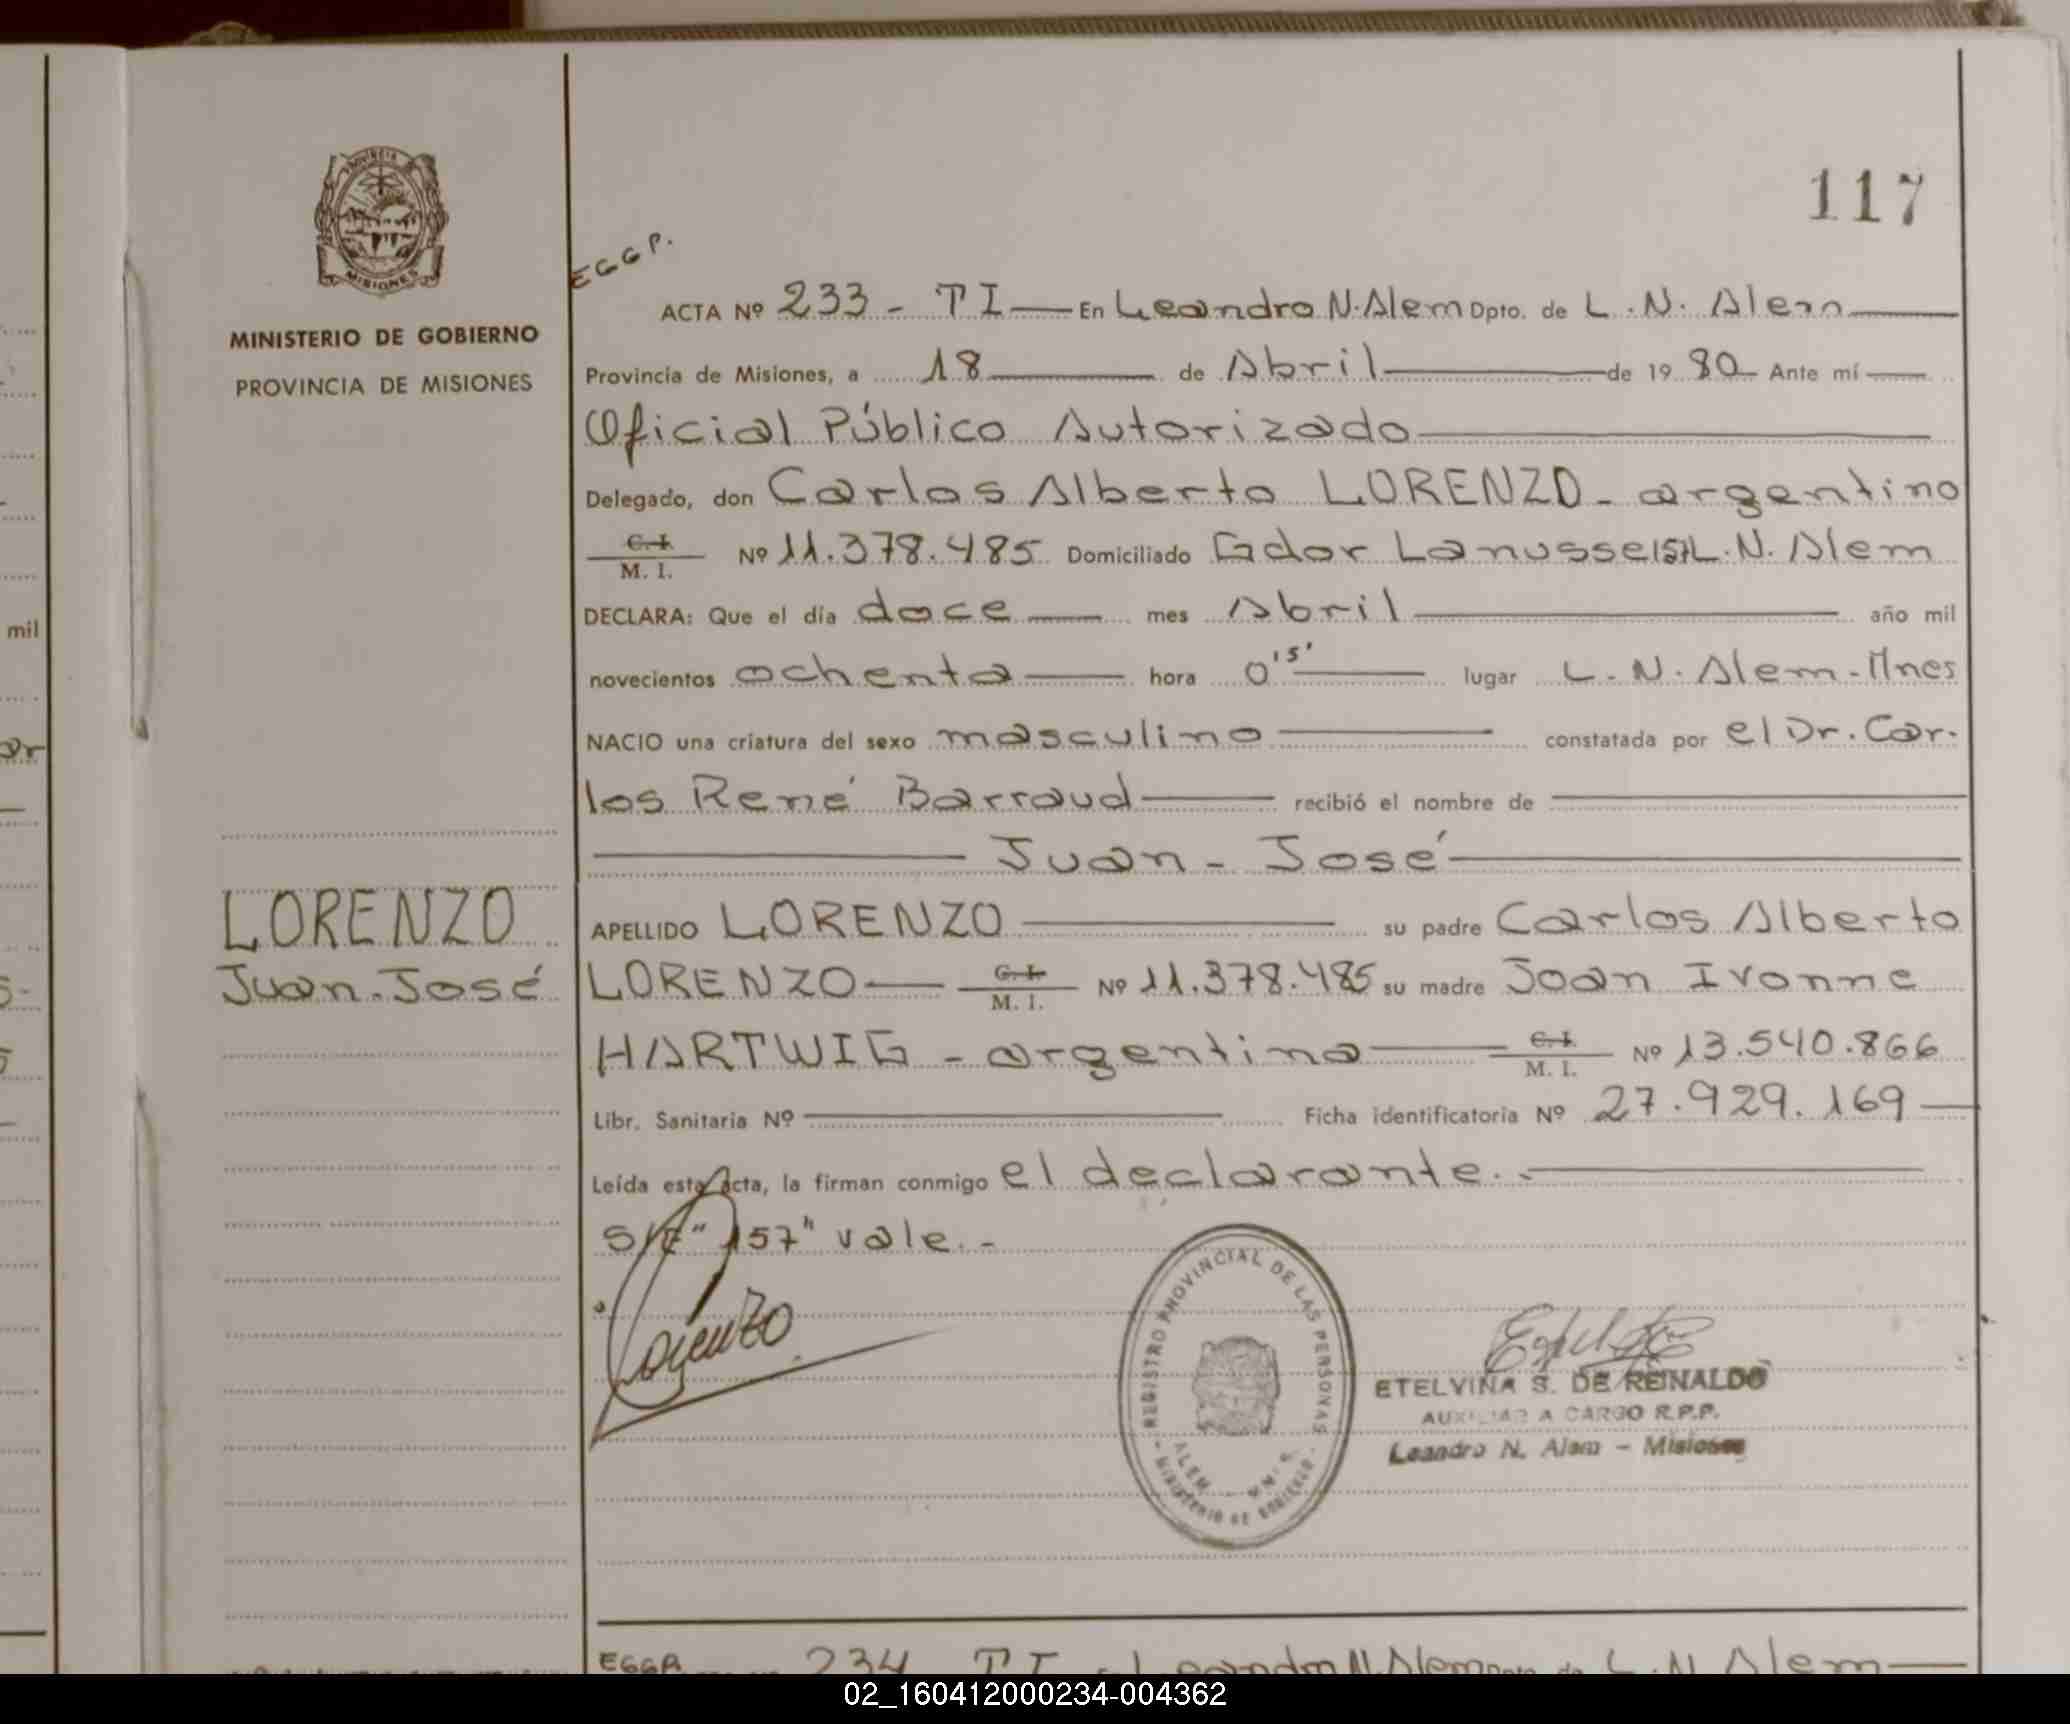 117
PROVINCIA
MISIONES
MINISTERIO DE GOBIERNO
PROVINCIA DE MISIONES
EGGP.
ACTA Nº 233 - TI — En Leandro N. Alem Dpto. de L. N. Alem —
Provincia de Misiones, a 18 — de Abril — de 1980 Ante mí —
Oficial Público Autorizado —
Delegado, don Carlos Alberto LORENZO - argentino
C. I. M. I. Nº 11.378.485 Domiciliado Gdor Lanusse 157 L. N. Alem
DECLARA: Que el día doce — mes Abril — año mil
novecientos ochenta — hora 0'5' — lugar L. N. Alem - Mnes
NACIO una criatura del sexo masculino — constatada por el Dr. Car-
los René Barraud — recibió el nombre de —
— Juan - José —
LORENZO
Juan - José
APELLIDO LORENZO — su padre Carlos Alberto
LORENZO — C. I. M. I. Nº 11.378.485 su madre Joan Ivonne
HARTWIG - argentina — C. I. M. I. Nº 13.540.866
Libr. Sanitaria Nº — Ficha identificatoria Nº 27.929.169 —
Leída esta acta, la firman conmigo el declarante. - —
S/E "157" vale. -
Lorenzo
REGISTRO PROVINCIAL DE LAS PERSONAS
ALEM
MINISTERIO DE GOBIERNO
ETELVINA S. DE REINALDO
AUXILIAR A CARGO R.P.P.
Leandro N. Alem - Misiones
EGGP
234 TI Leandro N. Alem L. N. Alem —
mil
ar
02_160412000234-004362